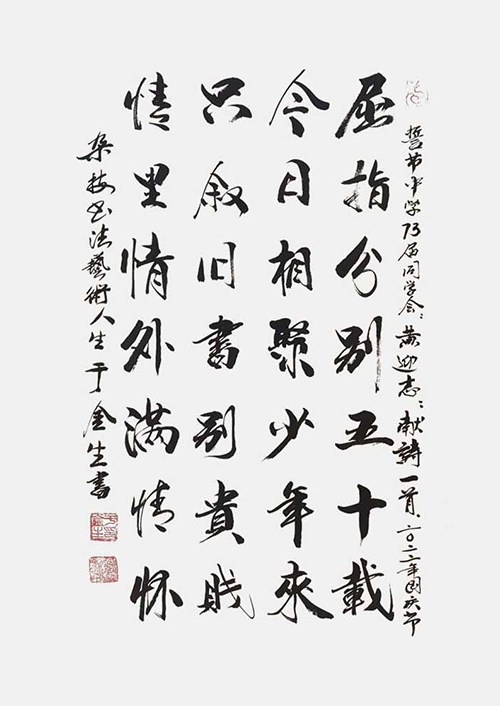 誓节中学73届同学会:黄迎志:献詩一首,二〇二二年國庆节
屈指分别五十載
今日相聚少年來
只叙旧書别貴賤
情里情外满情怀
杂技书法藝術人生于金生書